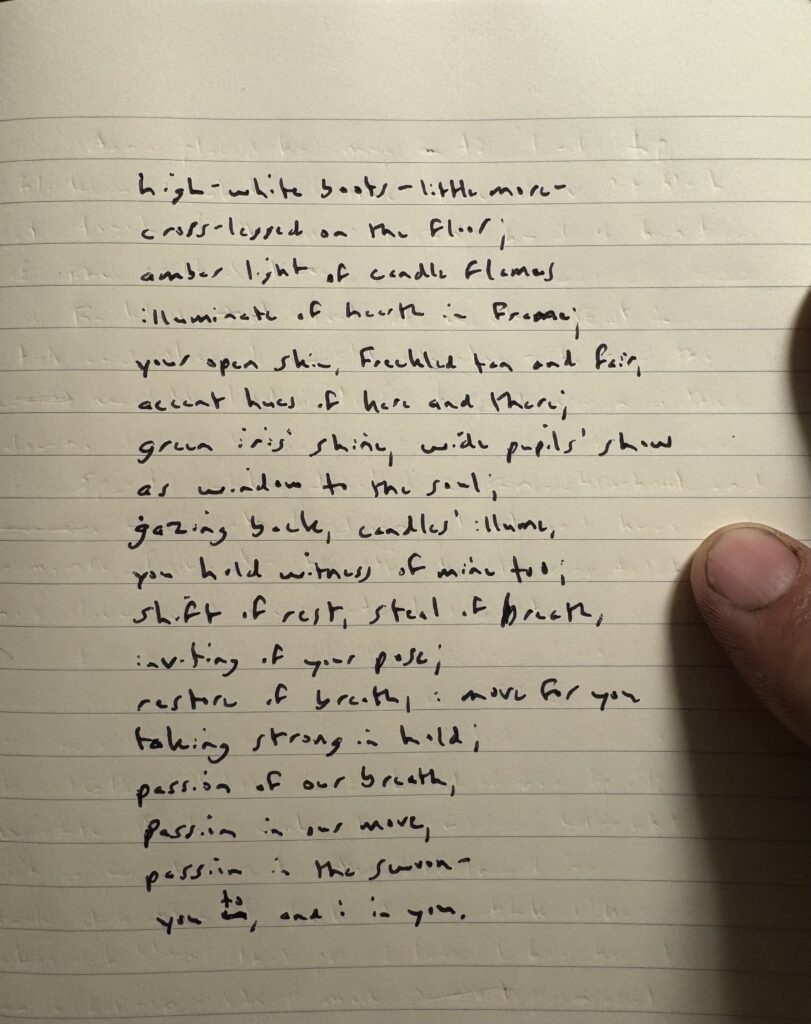 high-white boots - little more -
cross-legged on the floor;
amber light of candle flames
illuminate of hearth in frame;
your open skin, freckled tan and fair,
accent hues of here and there;
green iris' shine, wide pupils' show
as window to the soul;
gazing back, candles' illume,
you hold witness of mine too;
shift of rest, steal of breath,
inviting of your pose;
restore of breath, i move for you
taking strong in hold;
passion of our breath,
passion in our move,
passion in the swoon-
you to, and i in you.